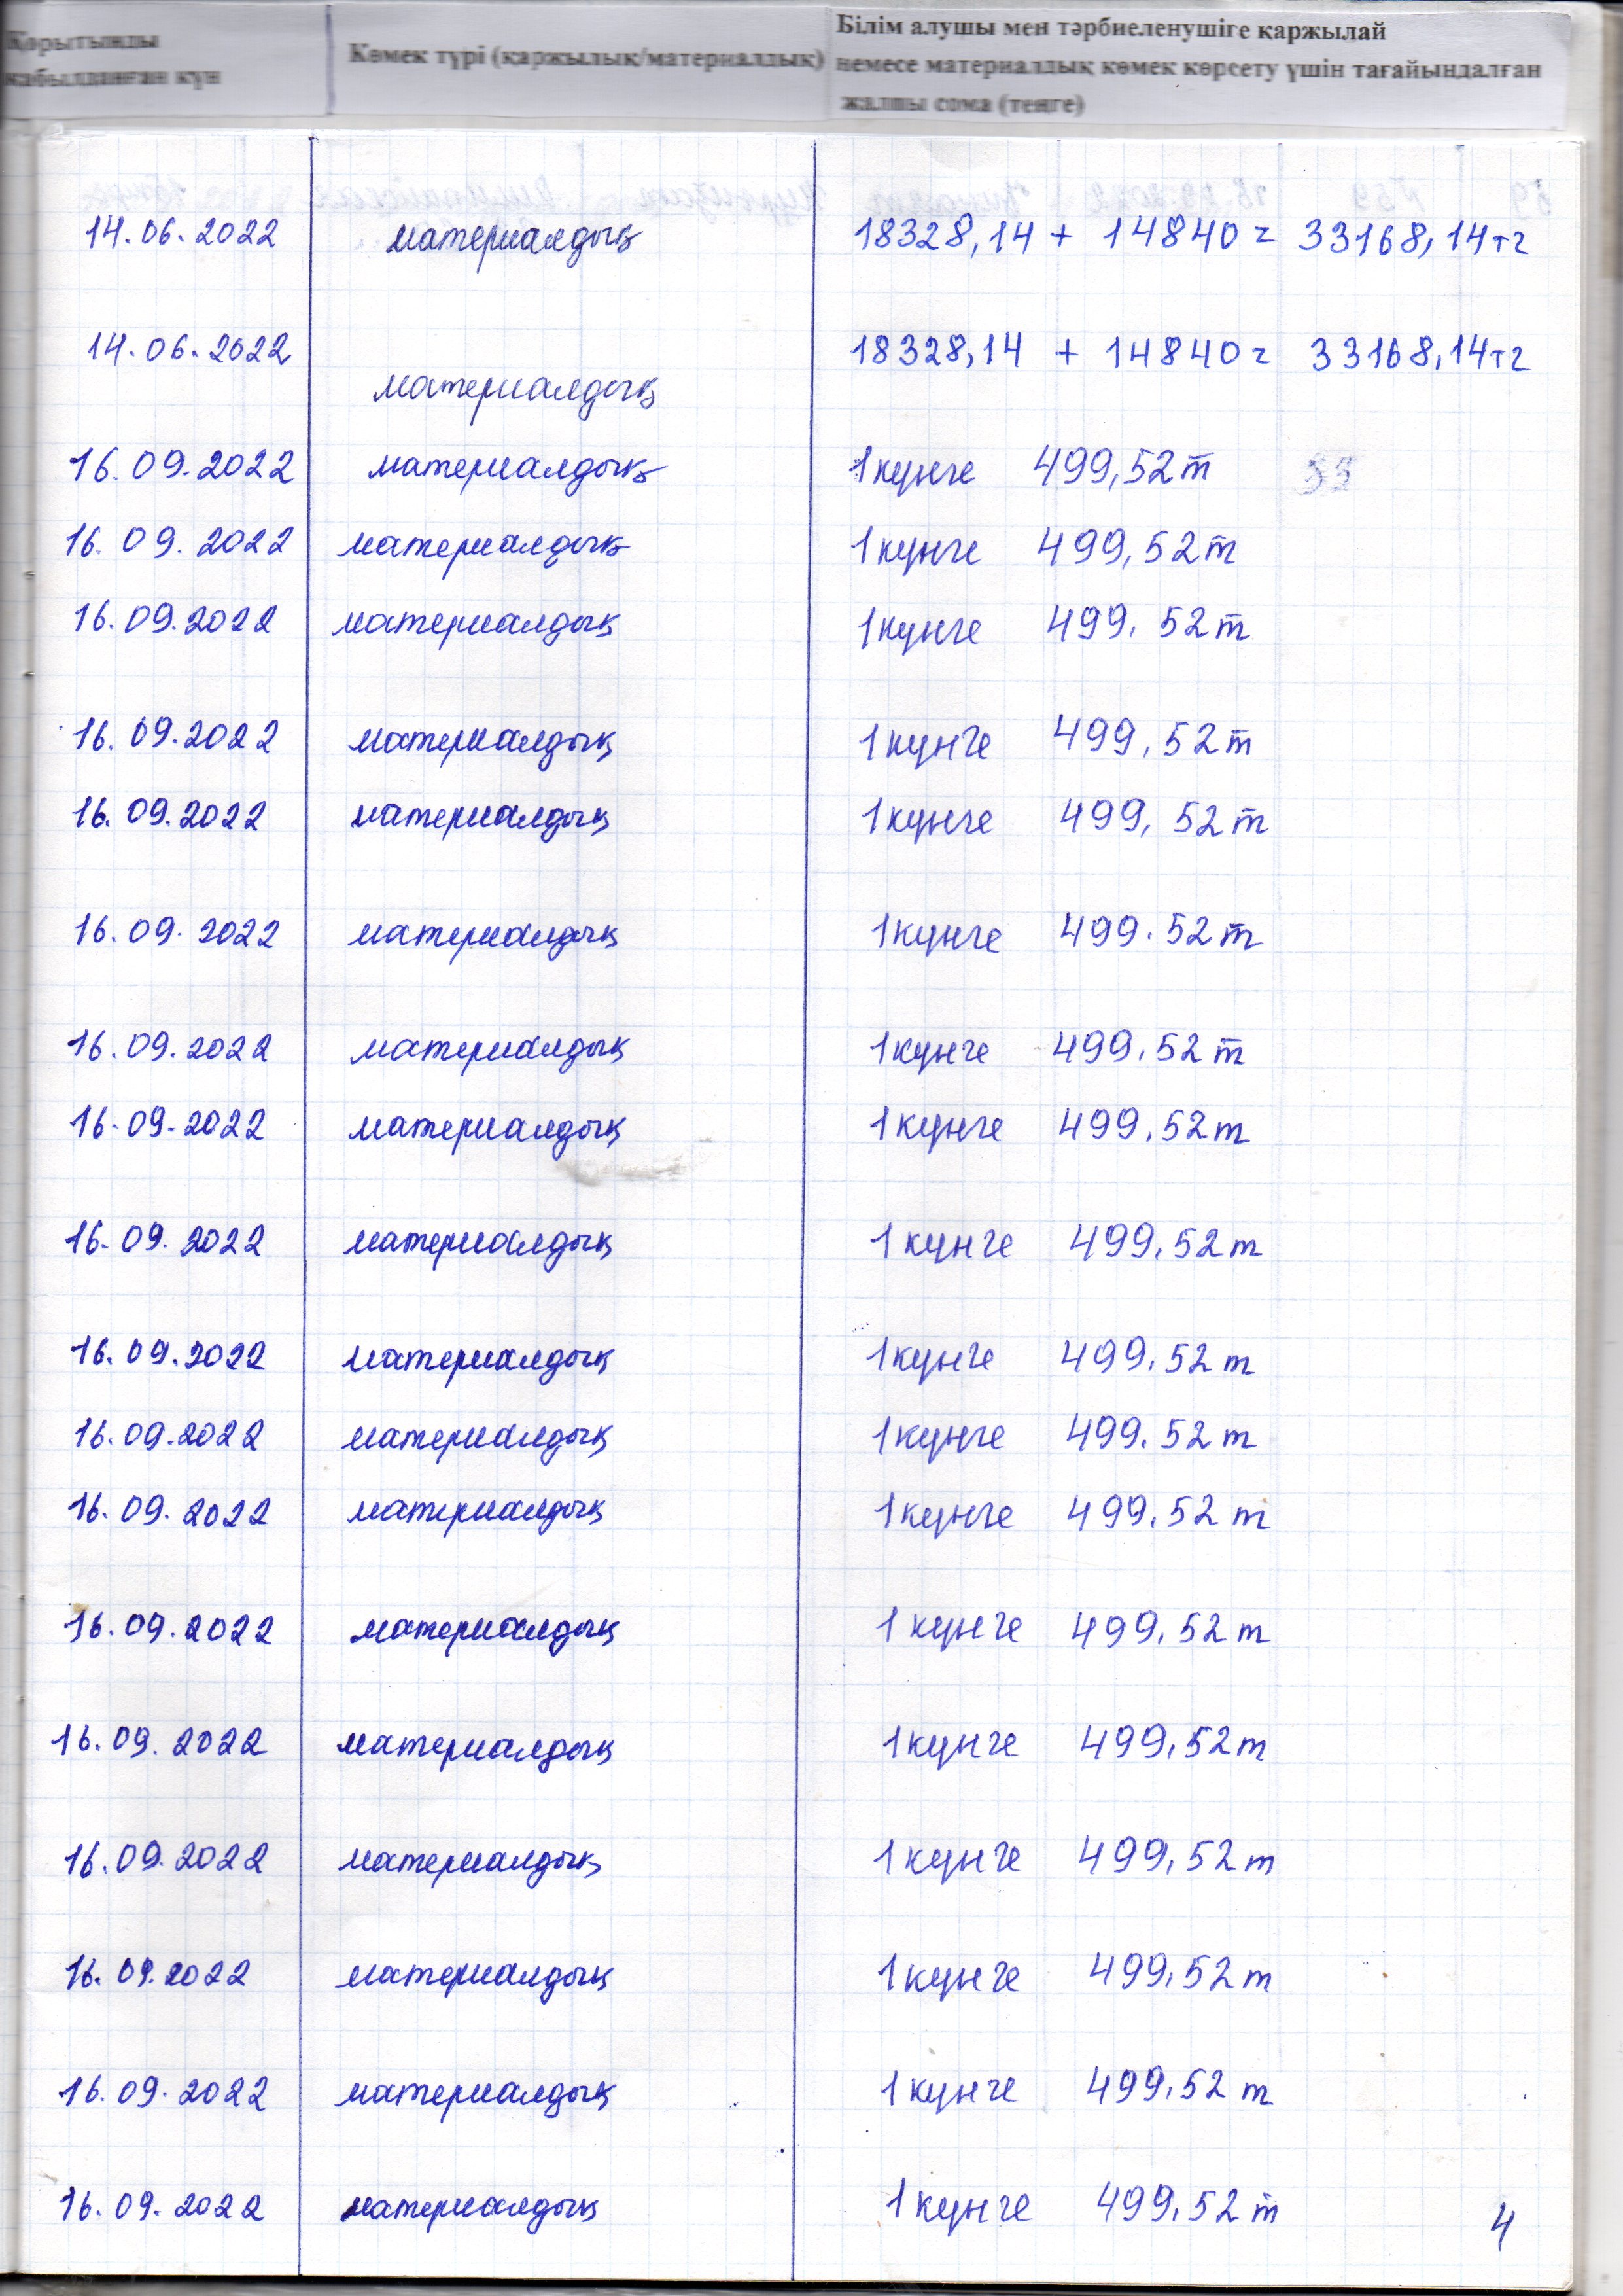 Қорытынды
қабылданған күн
Көмек түрі (қаржылық/материалдық)
Білім алушы мен тәрбиеленушіге қаржылай
немесе материалдық көмек көрсету үшін тағайындалған
жалпы сома (теңге)
14.06.2022 материалдық 18328,14 + 14840 = 33168,14тг
14.06.2022 материалдық 18328,14 + 14840 = 33168,14тг
16.09.2022 материалдық 1 күнге 499,52т
16.09.2022 материалдық 1 күнге 499,52т
16.09.2022 материалдық 1 күнге 499,52т
16.09.2022 материалдық 1 күнге 499,52т
16.09.2022 материалдық 1 күнге 499,52т
16.09.2022 материалдық 1 күнге 499.52т
16.09.2022 материалдық 1 күнге 499,52т
16.09.2022 материалдық 1 күнге 499,52т
16.09.2022 материалдық 1 күнге 499,52т
16.09.2022 материалдық 1 күнге 499,52т
16.09.2022 материалдық 1 күнге 499,52т
16.09.2022 материалдық 1 күнге 499,52т
16.09.2022 материалдық 1 күнге 499,52т
16.09.2022 материалдық 1 күнге 499,52т
16.09.2022 материалдық 1 күнге 499,52т
16.09.2022 материалдық 1 күнге 499,52т
16.09.2022 материалдық 1 күнге 499,52т
16.09.2022 материалдық 1 күнге 499,52т
4